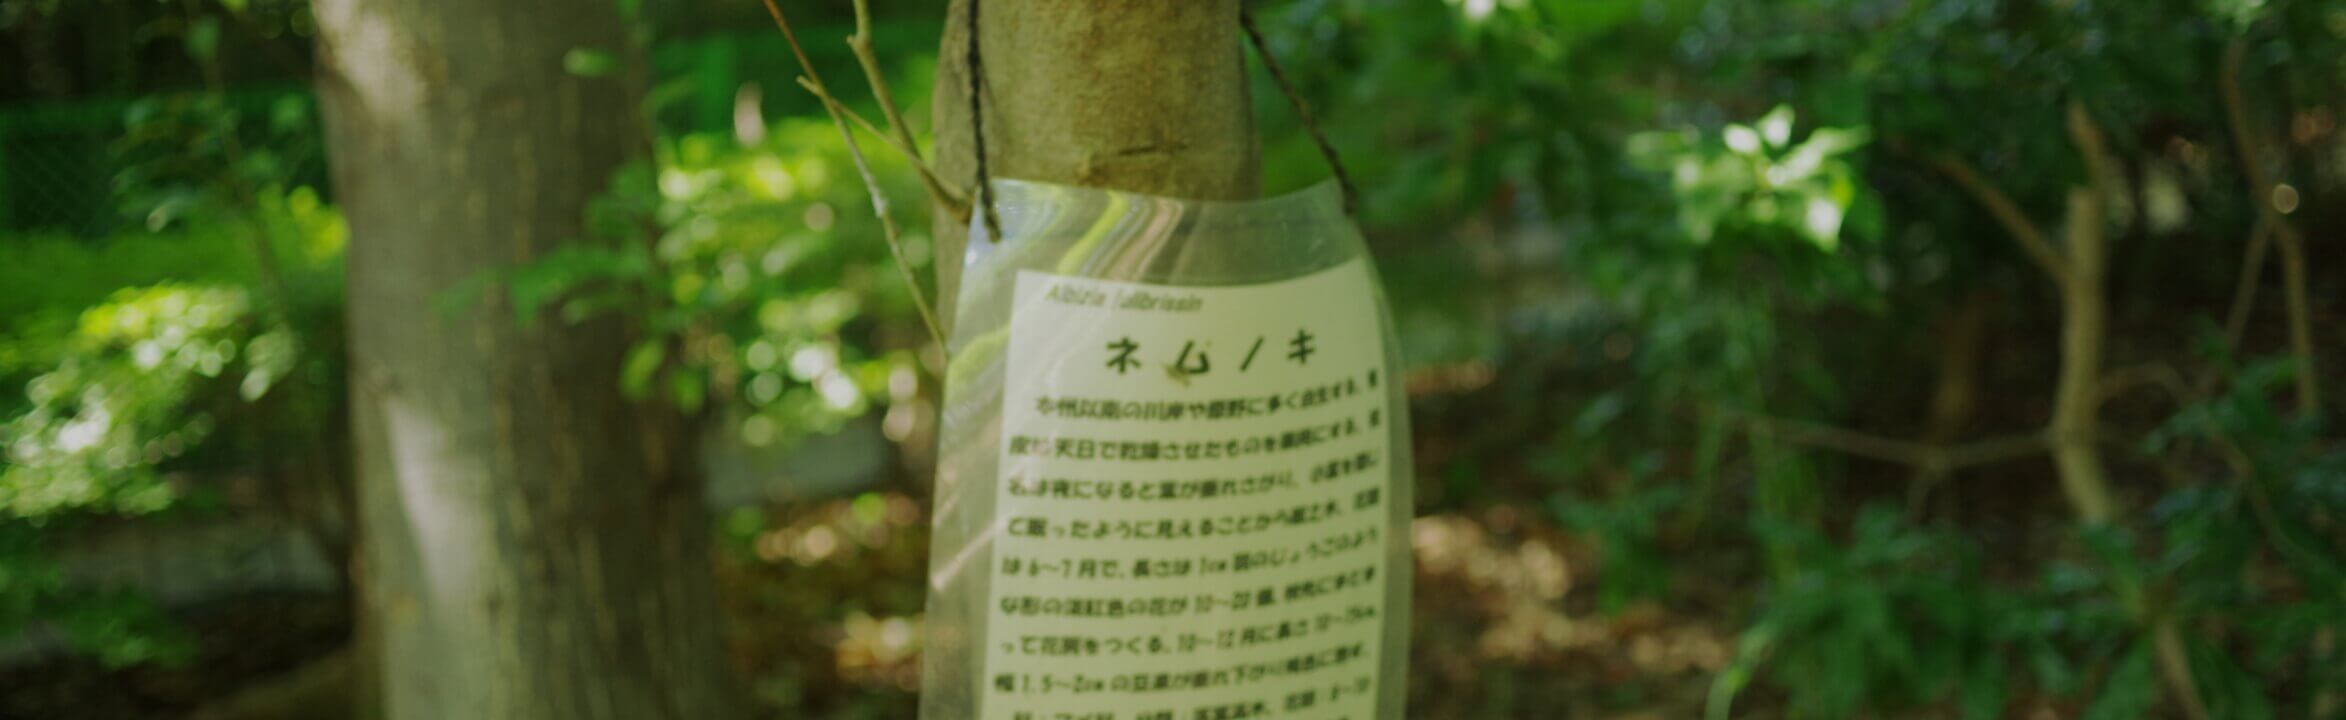 Albizia julibrissin
ネムノキ
本州以南の川岸や原野に多く自生する。
天日で乾燥させたものを薬用にする。
名は夜になると葉が垂れさがり、小葉を閉じ
て眠ったように見えることから
は6〜7月で、長さは1cm弱のじょうごのよう
な形の淡紅色の花が10〜20個、枝先にまとま
って花房をつくる。10〜12月に長さ10〜15cm、
幅1.5〜2cmの豆果が垂れ下がり褐色に熟す。